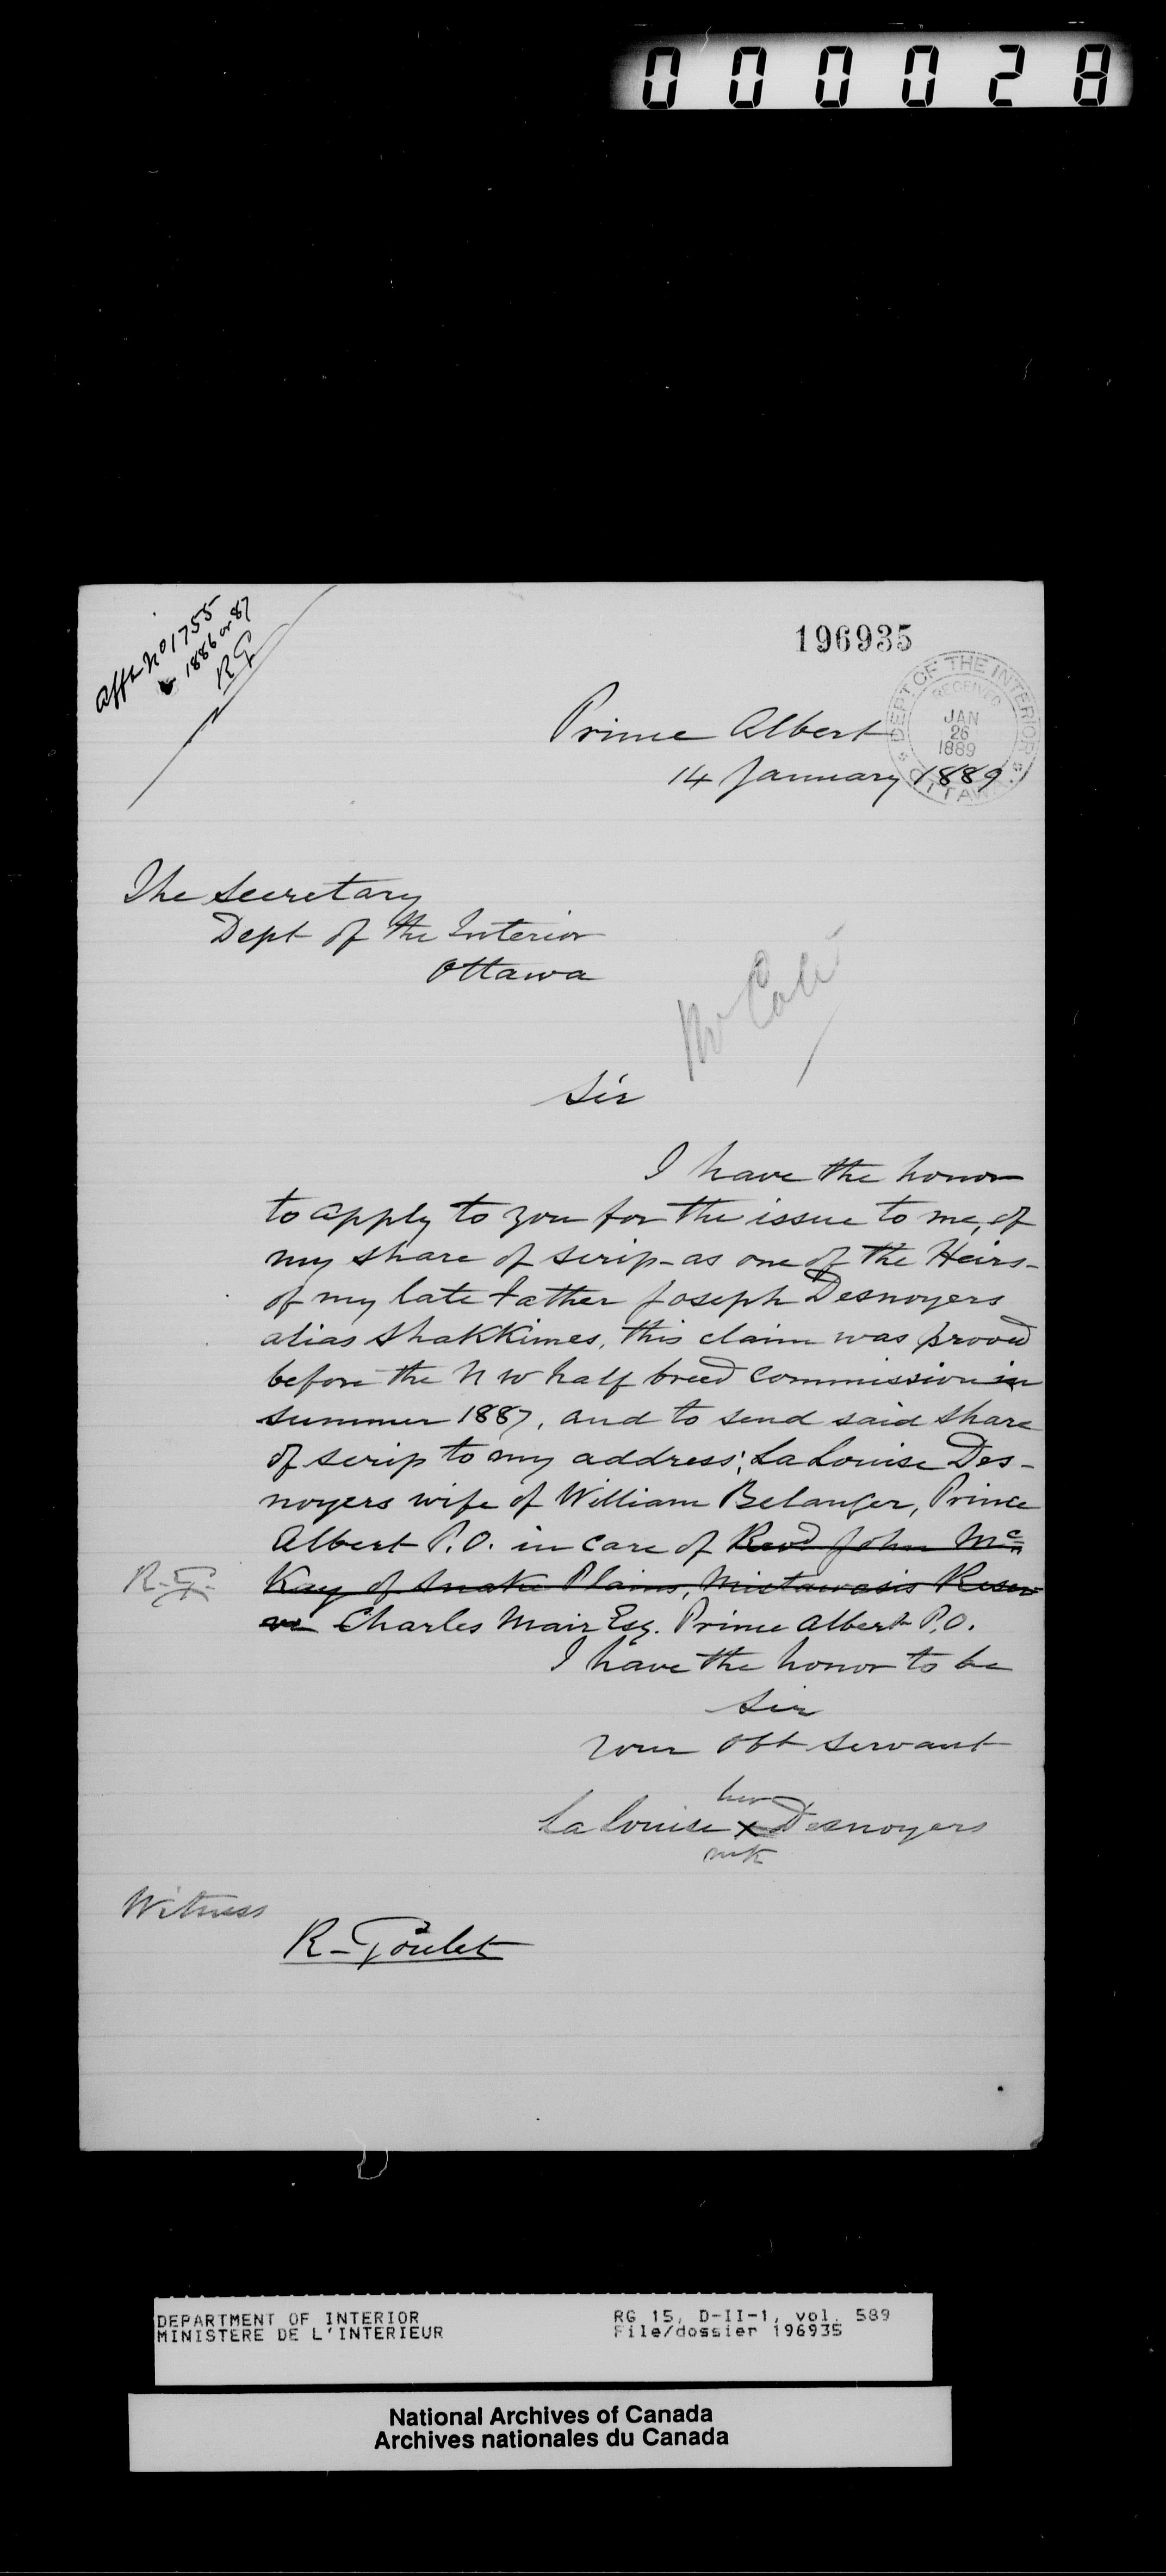 000028
Afft No 1755
1886 or 87
RG
196935
DEPT. OF THE INTERIOR
RECEIVED
JAN
26
1889
OTTAWA
Prince Albert
14 January 1889
The Secretary
Dept of the Interior
Ottawa
Sir
I have the honor
to apply to you for the issue to me, of
my share of scrip - as one of the Heirs -
of my late father Joseph Desnoyers
alias ShakKimes, this claim was proved
before the N W half breed commission in
summer 1887, and to send said share
of scrip to my address; LaLouise Des-
noyers wife of William Belanger, Prince
Albert P.O. in care of Revd John Mc
R.G. Kay of Snake Plains, Mistawasis Reser
ve Charles Mair Esq. Prince Albert P.O.
I have the honor to be
Sir
Your Obt servant
her
La Louise x Desnoyers
mk
Witness
R- Goulet
DEPARTMENT OF INTERIOR RG 15, D-II-1, vol. 589
MINISTERE DE L'INTERIEUR File/dossier 196935
National Archives of Canada
Archives nationales du Canada